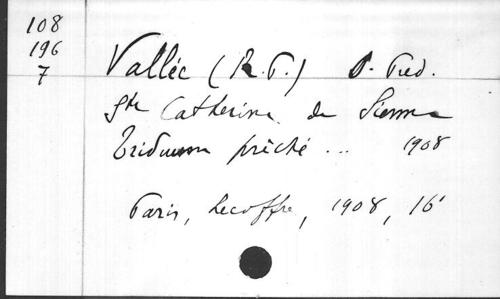 108
196
7
Vallée (R.P.) O. Pred.
Ste Catherine de Sienne
Triduum prêché ... 1908
Paris, Lecoffre, 1908, 16°